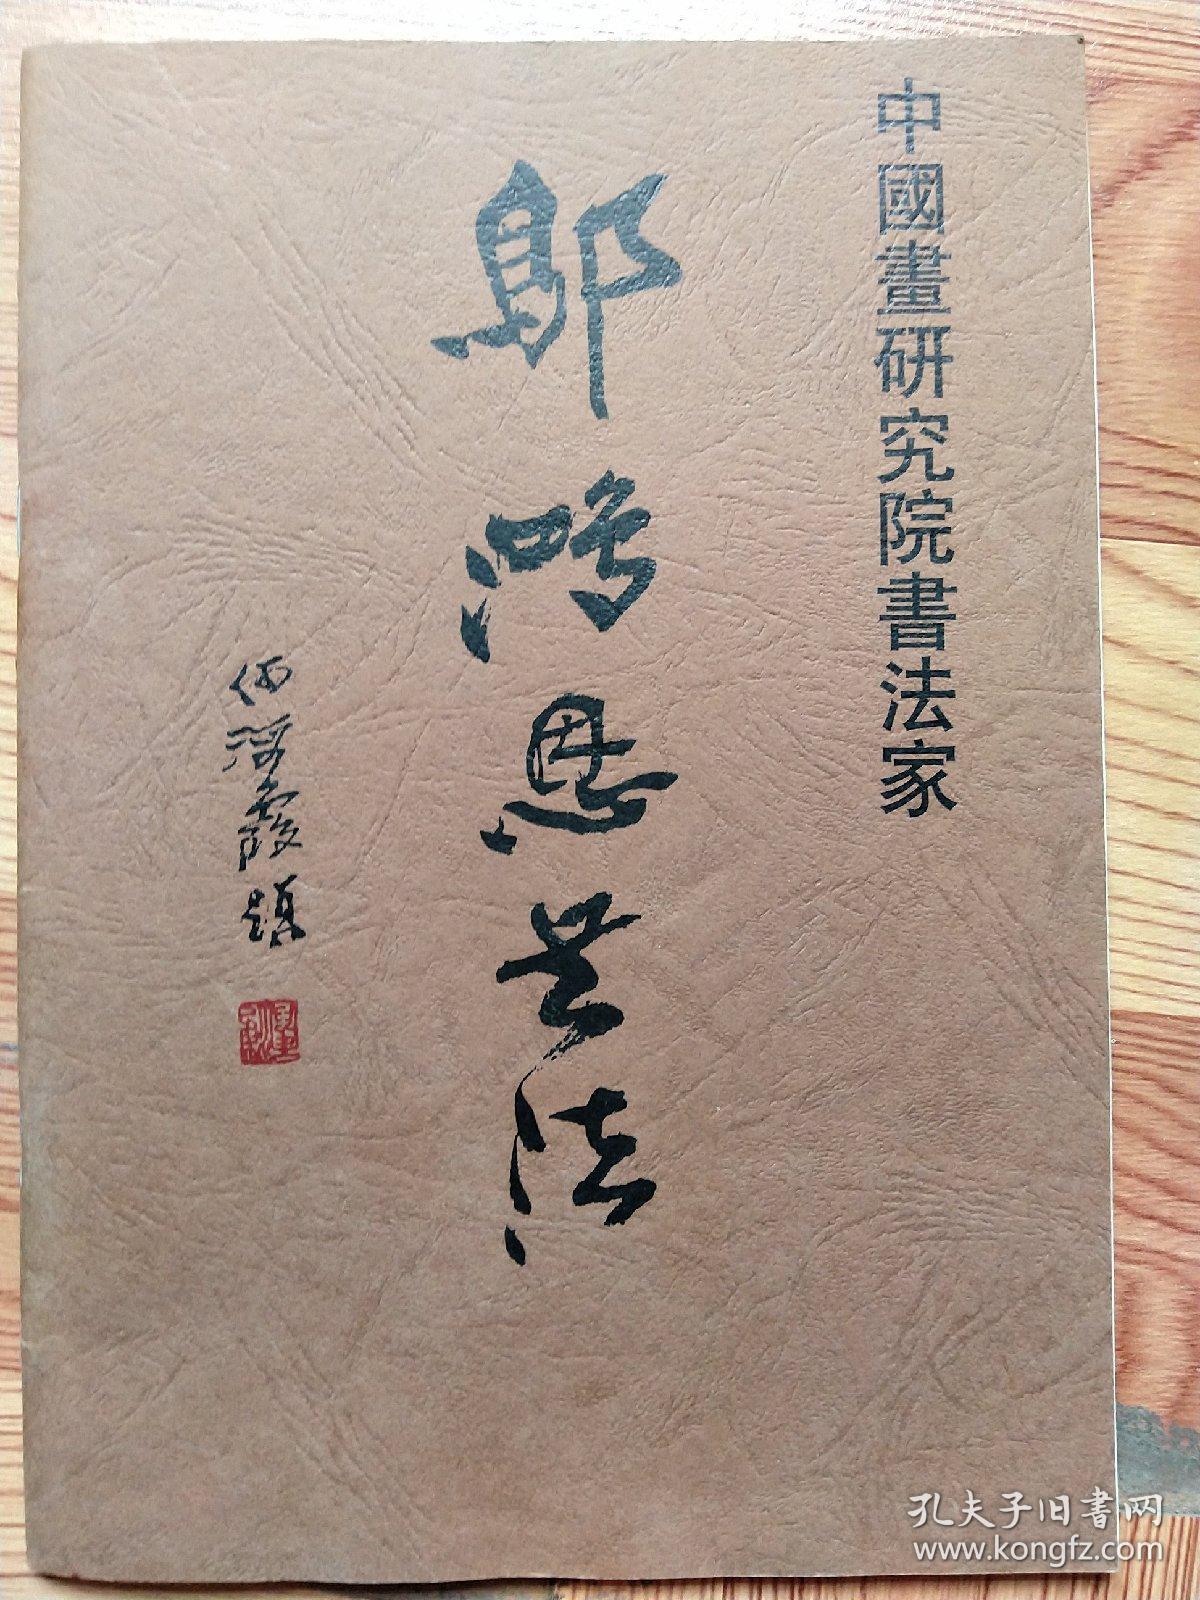 中國畫研究院書法家
鄔鴻恩书法
何海霞題
孔夫子旧书网
www.kongfz.com